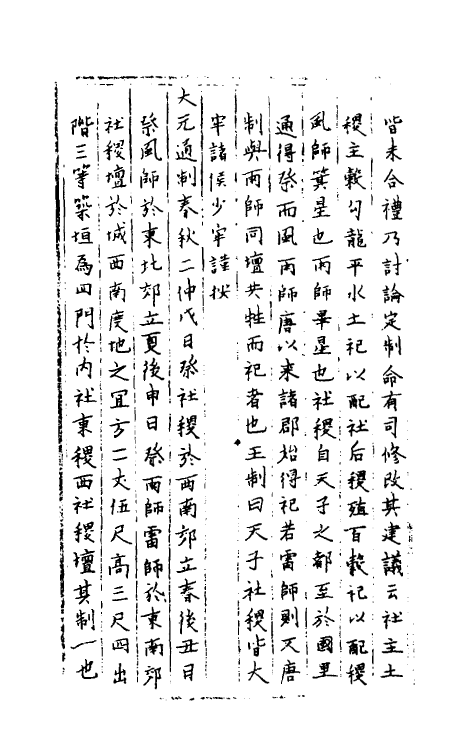 皆未合禮乃討論定制命有司修改其建議云社主土
稷主穀勾龍平水土祀以配社后稷殖百穀祀以配稷
風師箕星也雨師畢星也社稷自天子之都至於國里
通得祭而風雨師唐以来諸郡始得祀若雷師則又唐
制與雨師同壇共牲而祀者也王制曰天子社稷皆大
牢諸侯少牢謹按
大元通制春秋二仲戊日祭社稷於西南郊立春後丑日
祭風師於東北郊立夏後申日祭雨師雷師於東南郊
社稷壇於城西南度地之宜方一丈伍尺高三尺四出
階三等築垣為四門於内社東稷西社稷壇其制一也